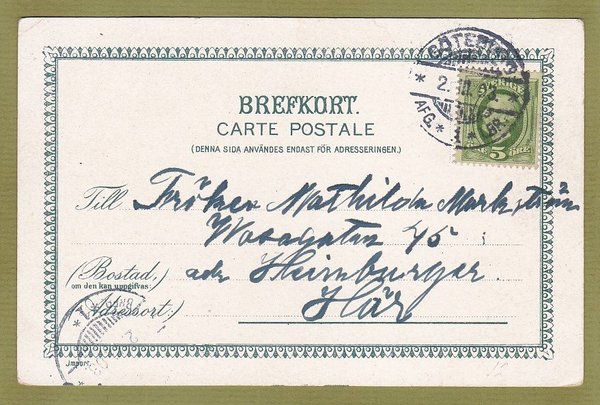 GÖTEBORG
AFG.
SVERIGE
5 ÖRE
BREFKORT.
CARTE POSTALE
(DENNA SIDA ANVÄNDES ENDAST FÖR ADRESSERINGEN.)
Till Fröken Mathilda Markström
Wasagatan 45
(Bostad,) adr Heimburger
om den kan uppgifvas:
(Adressort:) Här